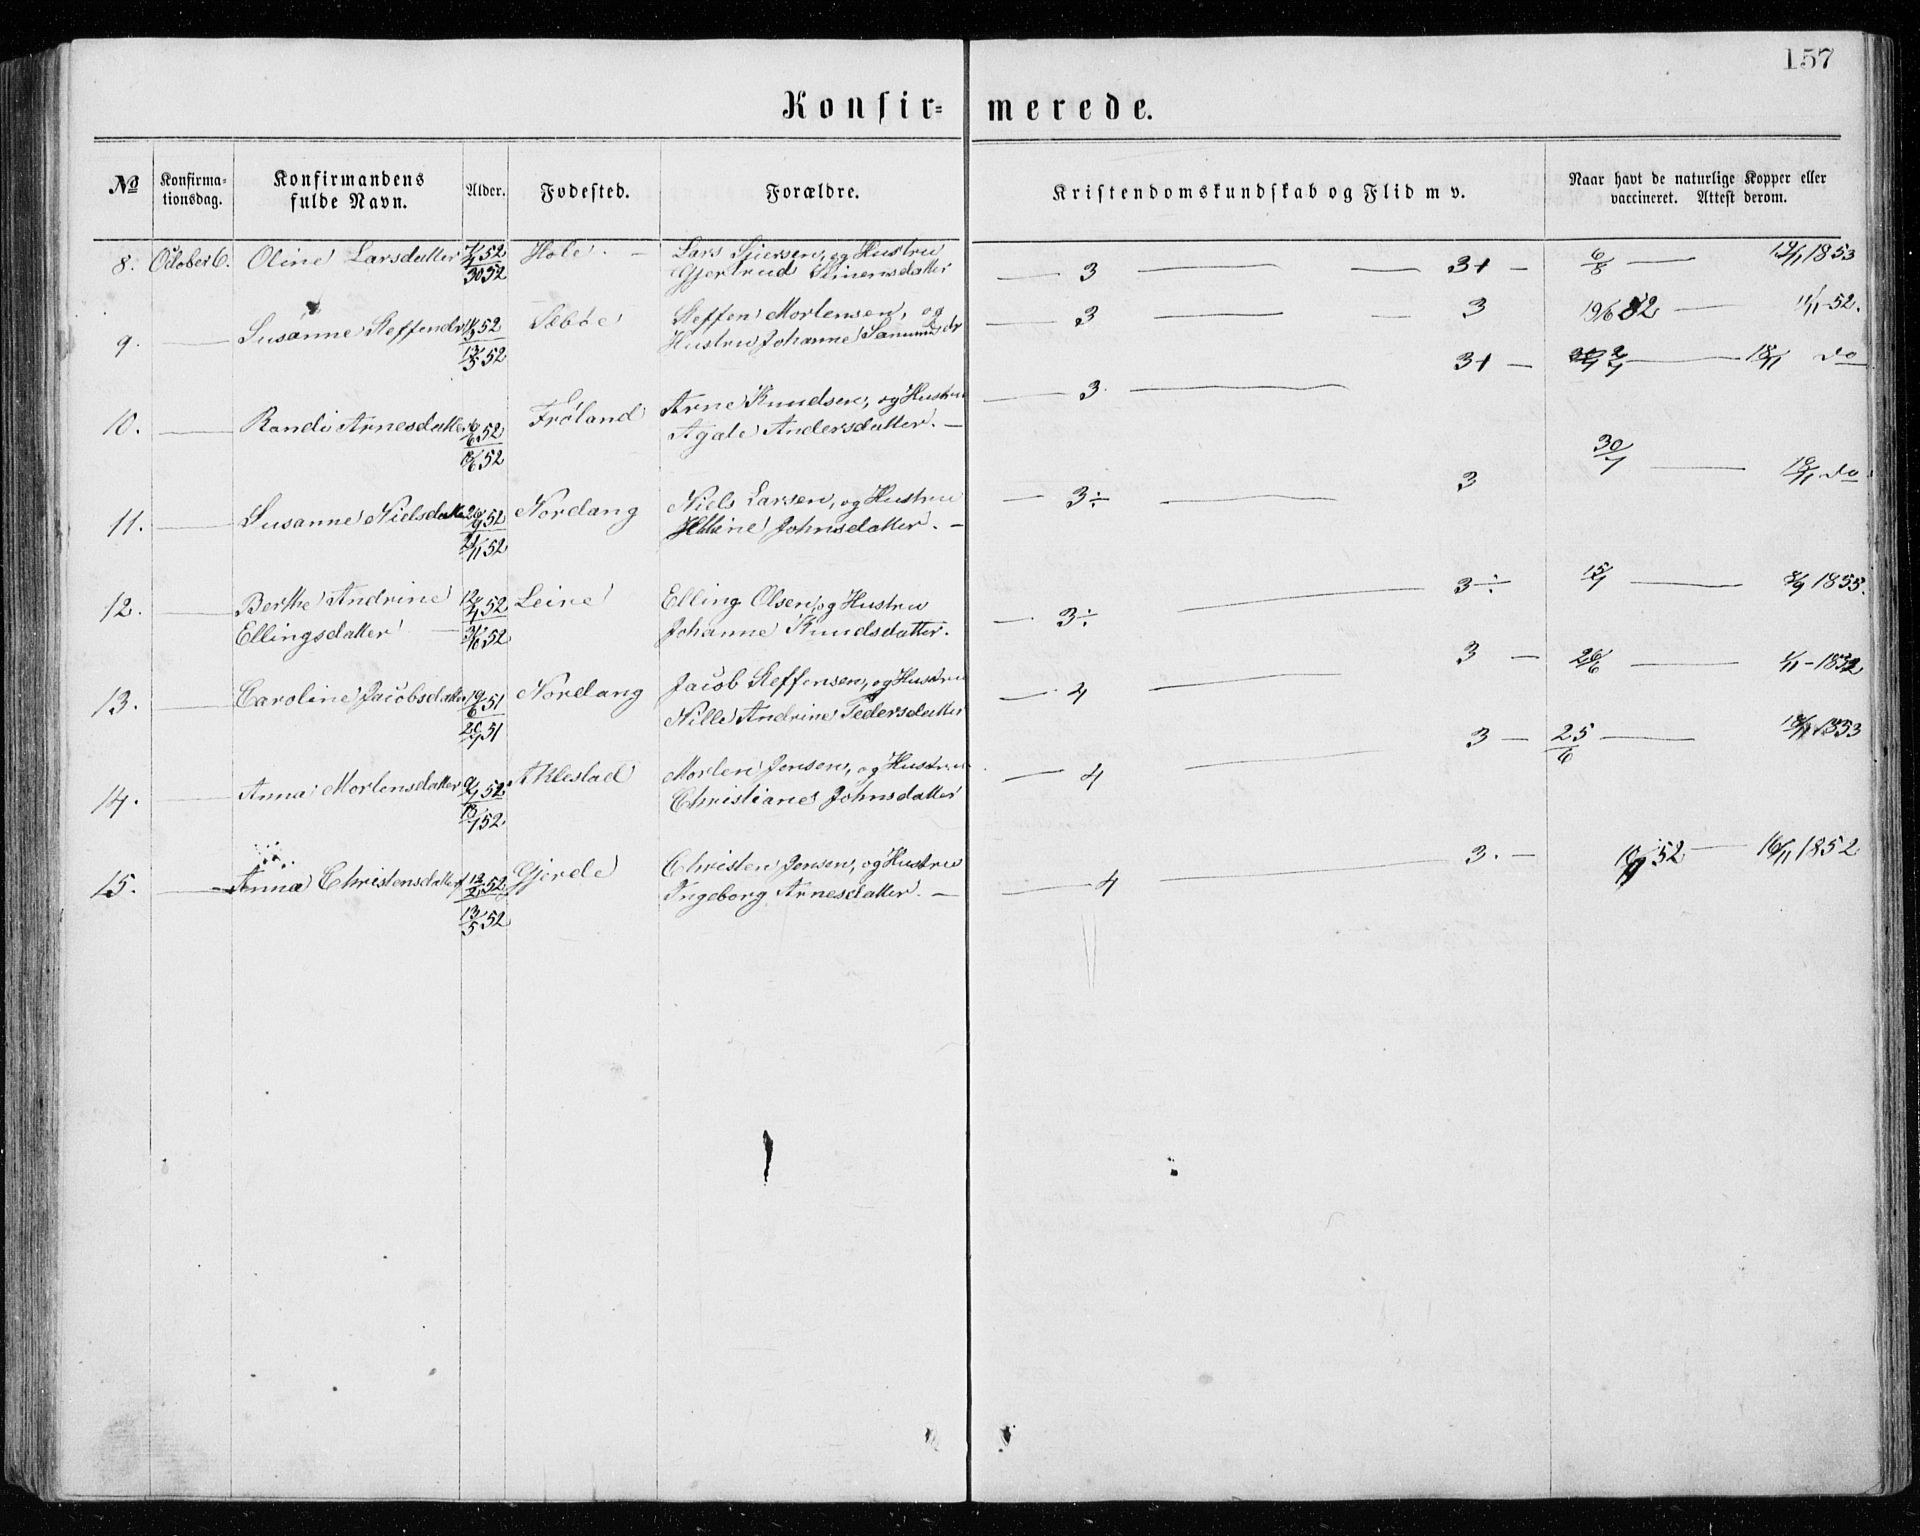 157
Konfir= merede.
No Konfirma-tionsdag. Konfirmandens fulde Navn. Alder. Fødested. Forældre. Kristendomskundskab og Flid m v. Naar havt de naturlige Kopper eller vaccineret. Attest derom.
8. October 6. Oline Larsdatter 52 Hole. Lars og Hustru 3 3+ 6/8 19/1 1853
3052 Gjertrud
9. Susanne Steffensdr 52 Sæbøe Steffen Mortensen, og 3 3 19/6 52 11/11-52.
13/5 52 Hustru Johanne
10. Randi Arnesdatter 52 Frøland Arne Knudsen, og Hustru 3. 3+ 18/11 do
52 Agate Andersdatter.
11. Susanne Nielsdatter 26/9 52 Nordang Niels Larsen, og Hustru 3÷ 3 30/7 do
52 Johnsdatter.
12. Berthe Andrine 52 Leine Elling Olsen, og Hustru 3÷ 3÷ 15/7 8/9 1855.
Ellingsdatter 52 Johanne Knudsdatter.
13. Caroline Jacobsdatter 19/6 51 Nordang Jacob Steffensen, og Hustru 4 3 26/6
51 Nille Andrine Pedersdatter
14. Anna Mortensdatter 52 Aklestad Morten Jensen, og Hustru 4 3 25/6 1853
52. Christiane Johnsdatter
15. Anna Christensdatter 52 Gjerde Christen Jensen, og Hustru 4 3. 52 16/11 1852
13/5 52 Ingeborg Arnesdatter.